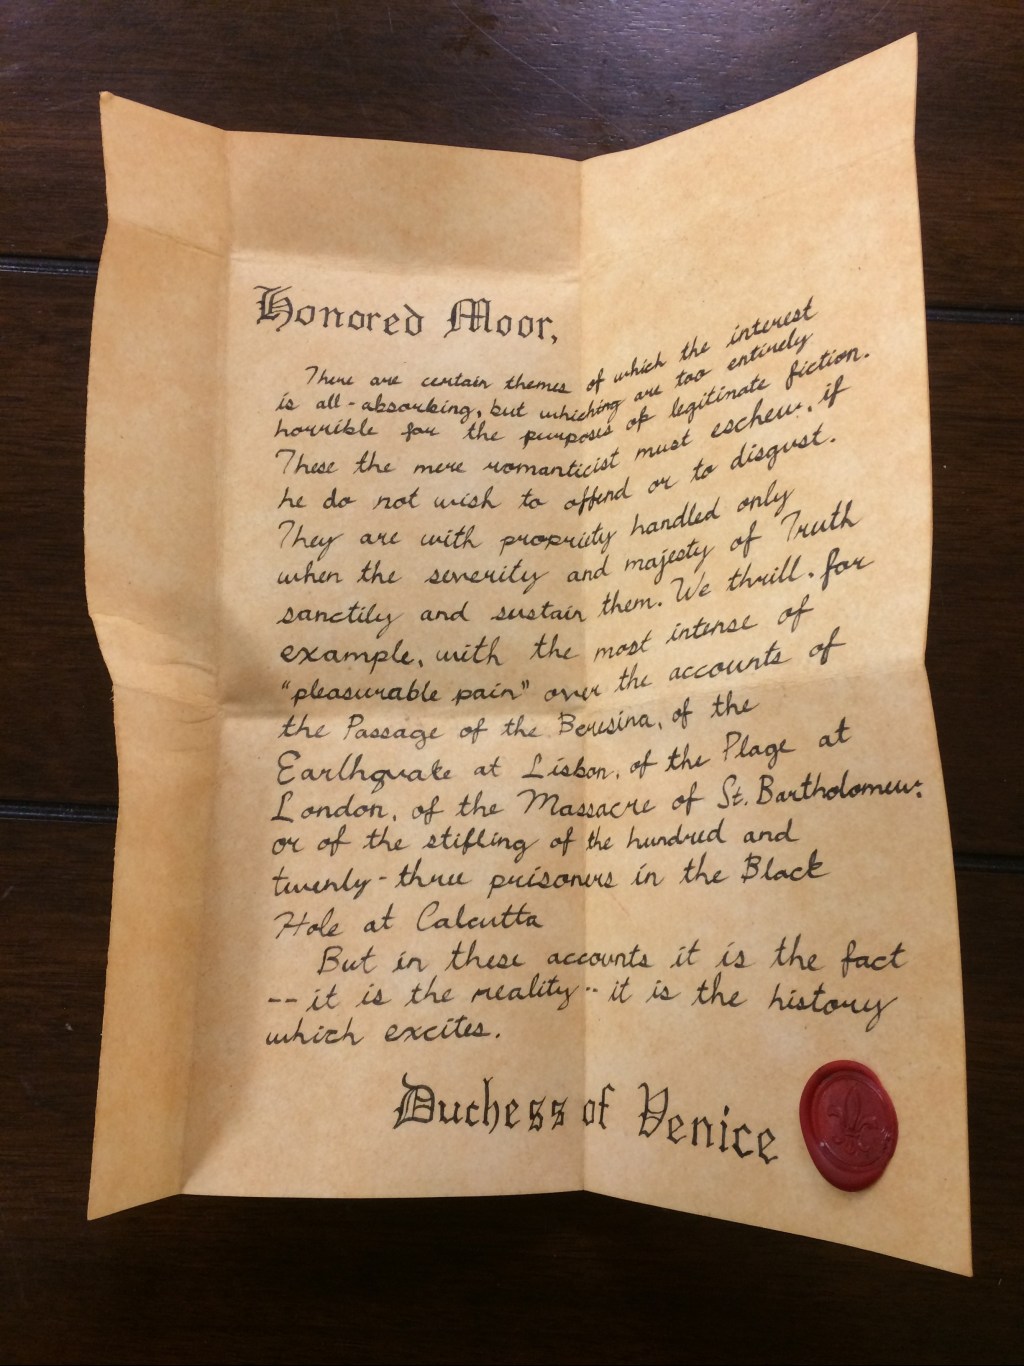 Honored Moor,
There are certain themes of which the interest
is all-absorbing, but whiching are too entirely
horrible for the purposes of legitinate fiction.
These the mere romanticist must eschew, if
he do not wish to offend or to disgust.
They are with propriety handled only
when the severity and majesty of Truth
sanctily and sustain them. We thrill, for
example, with the most intense of
"pleasurable pain" over the accounts of
the Passage of the Beresina, of the
Earthquake at Lisbon, of the Plage at
London, of the Massacre of St. Bartholomew,
or of the stifling of the hundred and
twenty-three prisoners in the Black
Hole at Calcutta
But in these accounts it is the fact
-- it is the reality -- it is the history
which excites.
Duchess of Venice